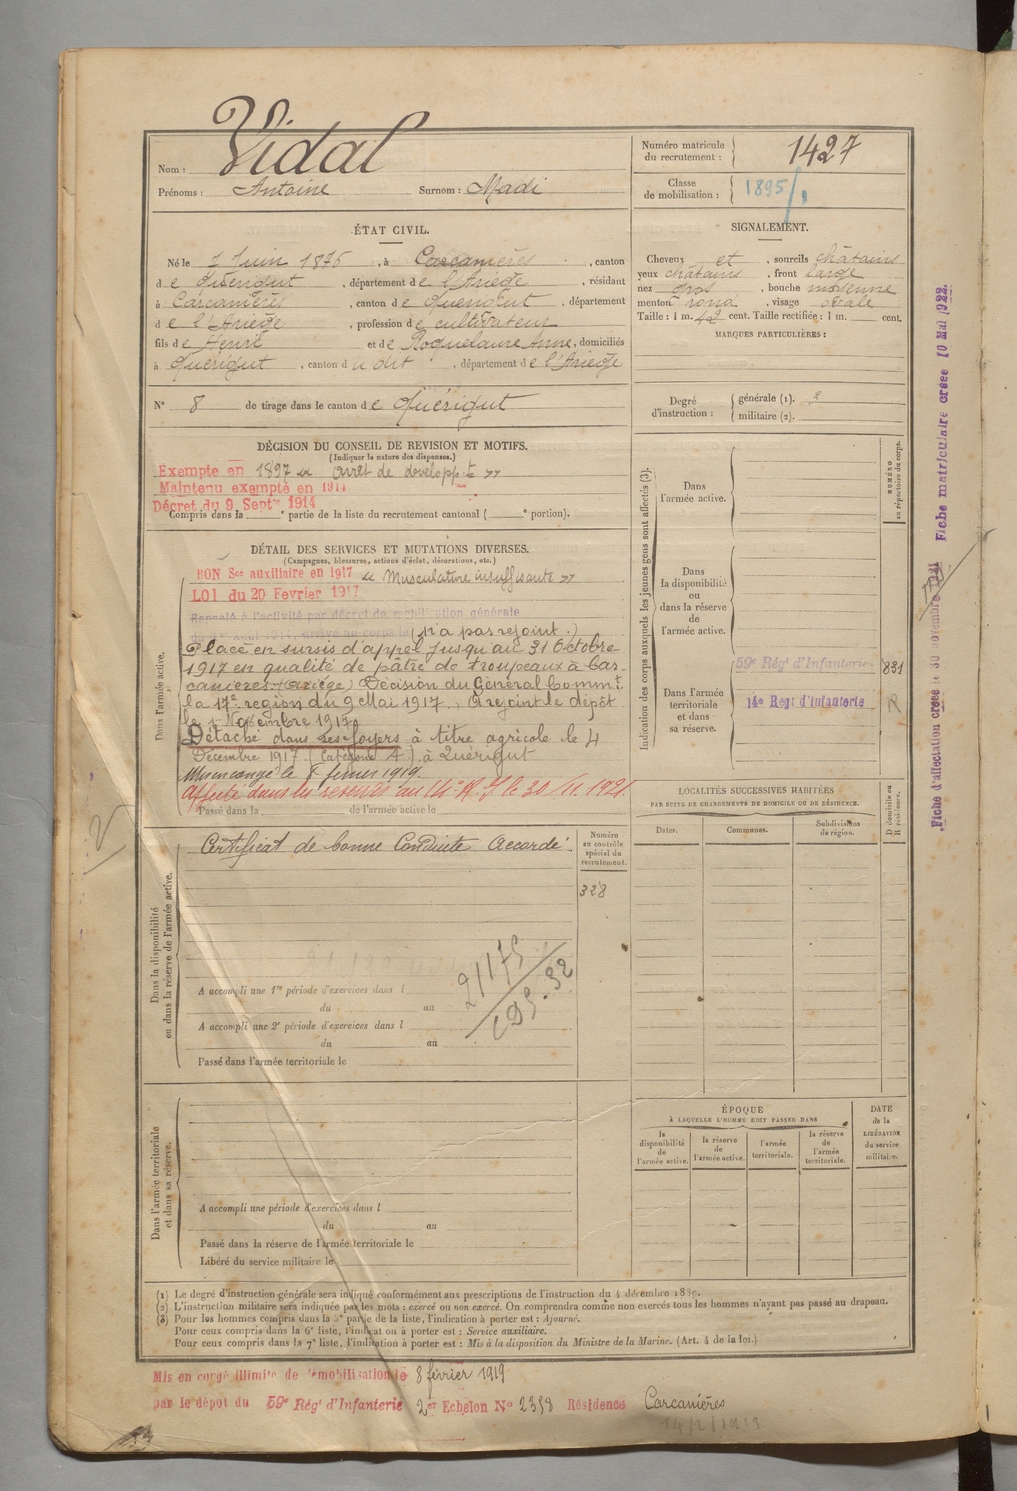 Vidal
Nom :
Prénoms : Antoine Surnom : Madi
Numéro matricule
du recrutement : 1427
Classe
de mobilisation : 1895
ÉTAT CIVIL.
Né le 1 Juin 1876, à Carcanières, canton
de Quérigut, département de l'Ariège, résidant
à Carcanières, canton de Quérigut, département
de l'Ariège, profession de cultivateur
fils de Henri et de Roquelaure Anne, domiciliés
à Quérigut, canton du dit, département de l'Ariège
N° 8 de tirage dans le canton de Quérigut
SIGNALEMENT.
Cheveux et, sourcils châtains
yeux châtains, front large
nez gros, bouche moyenne
menton rond, visage ovale
Taille : 1 m. 42 cent. Taille rectifiée : 1 m. cent.
MARQUES PARTICULIÈRES :
Degré
d'instruction :
générale (1). 3
militaire (2).
DÉCISION DU CONSEIL DE REVISION ET MOTIFS.
(Indiquer la nature des dispenses.)
Exempté en 1897 arrêt de developpt
Maintenu exempté en 1914
Décret du 9 Septre 1914
Compris dans la e partie de la liste du recrutement cantonal ( e portion).
DÉTAIL DES SERVICES ET MUTATIONS DIVERSES.
(Campagnes, blessures, actions d'éclat, décorations, etc.)
BON Sce auxiliaire en 1917 Musculature insuffisante
LOI du 20 Fevrier 1917
Rappelé à l'activité par décret de mobilisation générale
du 1er Août 1914, arrivé au corps le (n'a pas rejoint.)
Placé en sursis d'appel jusqu'au 31 Octobre
1917 en qualité de pâtre de troupeaux à Car-
canières (Ariège) Décision du Général Commt
la 17e région du 9 Mai 1917, A rejoint le dépôt
le 1 Novembre 1917
Détaché dans ses foyers à titre agricole le 4
Décembre 1917 (Catégorie A), à Quérigut
Mis en congé le 8 février 1919.
Affecté dans les réserves au 14e R.I le 30/11.1921
Passé dans la de l'armée active le
Dans l'armée active.
Indication des corps auxquels les jeunes gens sont affectés (3).
Dans
l'armée active.
Dans
la disponibilité
ou
dans la réserve
de
l'armée active.
Dans l'armée
territoriale
et dans
sa réserve.
NUMÉRO
au répertoire du corps.
59e Régt d'Infanterie 831
14e Regt d'Infanterie R
Dans la disponibilité
ou dans la réserve de l'armée active.
Certificat de bonne Conduite Accordé.
Numéro
au contrôle
spécial du
recrutement.
328
A accompli une 1re période d'exercices dans l
du au
A accompli une 2e période d'exercices dans l
du au
Passé dans l'armée territoriale le
LOCALITÉS SUCCESSIVES HABITÉES
PAR SUITE DE CHANGEMENTS DE DOMICILE OU DE RÉSIDENCE.
Dates. Communes. Subdivisions
de région.
D domicile ou
R résidence.
Dans l'armée territoriale
et dans sa réserve.
A accompli une période d'exercices dans l
du au
Passé dans la réserve de l'armée territoriale le
Libéré du service militaire le
ÉPOQUE
À LAQUELLE L'HOMME DOIT PASSER DANS
la
disponibilité
de
l'armée active.
la réserve
de
l'armée active.
l'armée
territoriale.
la réserve
de
l'armée
territoriale.
DATE
de la
LIBÉRATION
du service
militaire.
(1) Le degré d'instruction générale sera indiqué conformément aux prescriptions de l'instruction du 4 décembre 1889.
(2) L'instruction militaire sera indiquée par les mots : exercé ou non exercé. On comprendra comme non exercés tous les hommes n'ayant pas passé au drapeau.
(3) Pour les hommes compris dans la 5e partie de la liste, l'indication à porter est : Ajourné.
Pour ceux compris dans la 6e liste, l'indication à porter est : Service auxiliaire.
Pour ceux compris dans la 7e liste, l'indication à porter est : Mis à la disposition du Ministre de la Marine. (Art. 4 de la loi.)
Mis en congé illimité de démobilisation le 8 février 1919
par le dépot du 59e Régt d'Infanterie 2er Echelon N° 2359 Résidence Carcanières
Fiche d'affectation créée le 30 novembre 1921
Fiche matriculaire créée 10 Mai 1922.